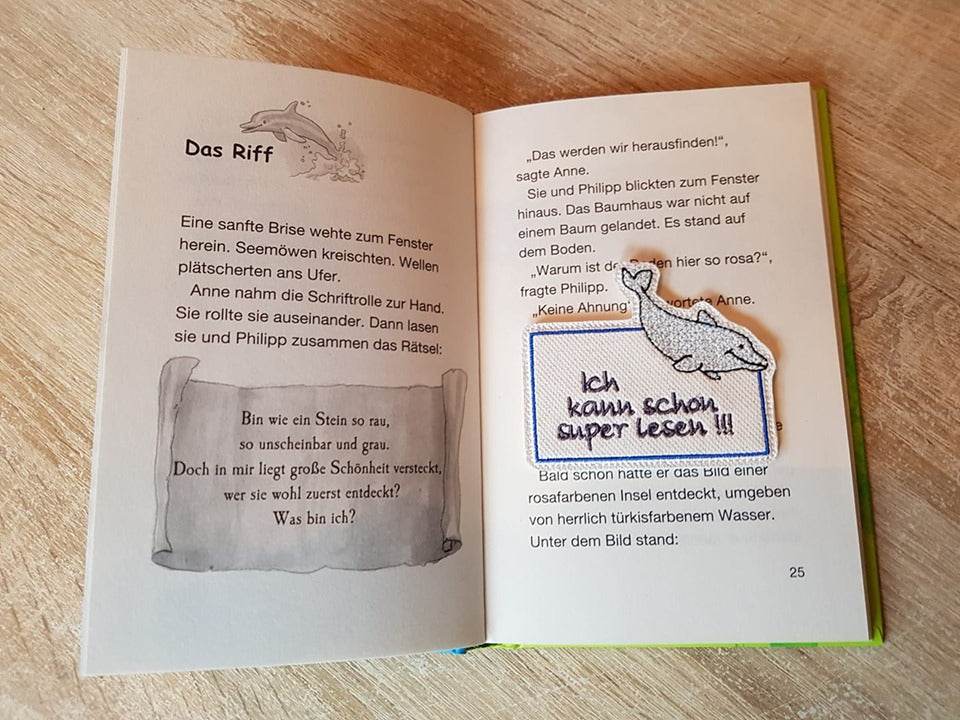 Das Riff
Eine sanfte Brise wehte zum Fenster
herein. Seemöwen kreischten. Wellen
plätscherten ans Ufer.
Anne nahm die Schriftrolle zur Hand.
Sie rollte sie auseinander. Dann lasen
sie und Philipp zusammen das Rätsel:
Bin wie ein Stein so rau,
so unscheinbar und grau.
Doch in mir liegt große Schönheit versteckt,
wer sie wohl zuerst entdeckt?
Was bin ich?
„Das werden wir herausfinden!“,
sagte Anne.
Sie und Philipp blickten zum Fenster
hinaus. Das Baumhaus war nicht auf
einem Baum gelandet. Es stand auf
dem Boden.
„Warum ist der Boden hier so rosa?“,
fragte Philipp.
„Keine Ahnung“, Anne.
Ich
kann schon
super lesen !!!
Bald schon hatte er das Bild einer
rosafarbenen Insel entdeckt, umgeben
von herrlich türkisfarbenem Wasser.
Unter dem Bild stand:
25